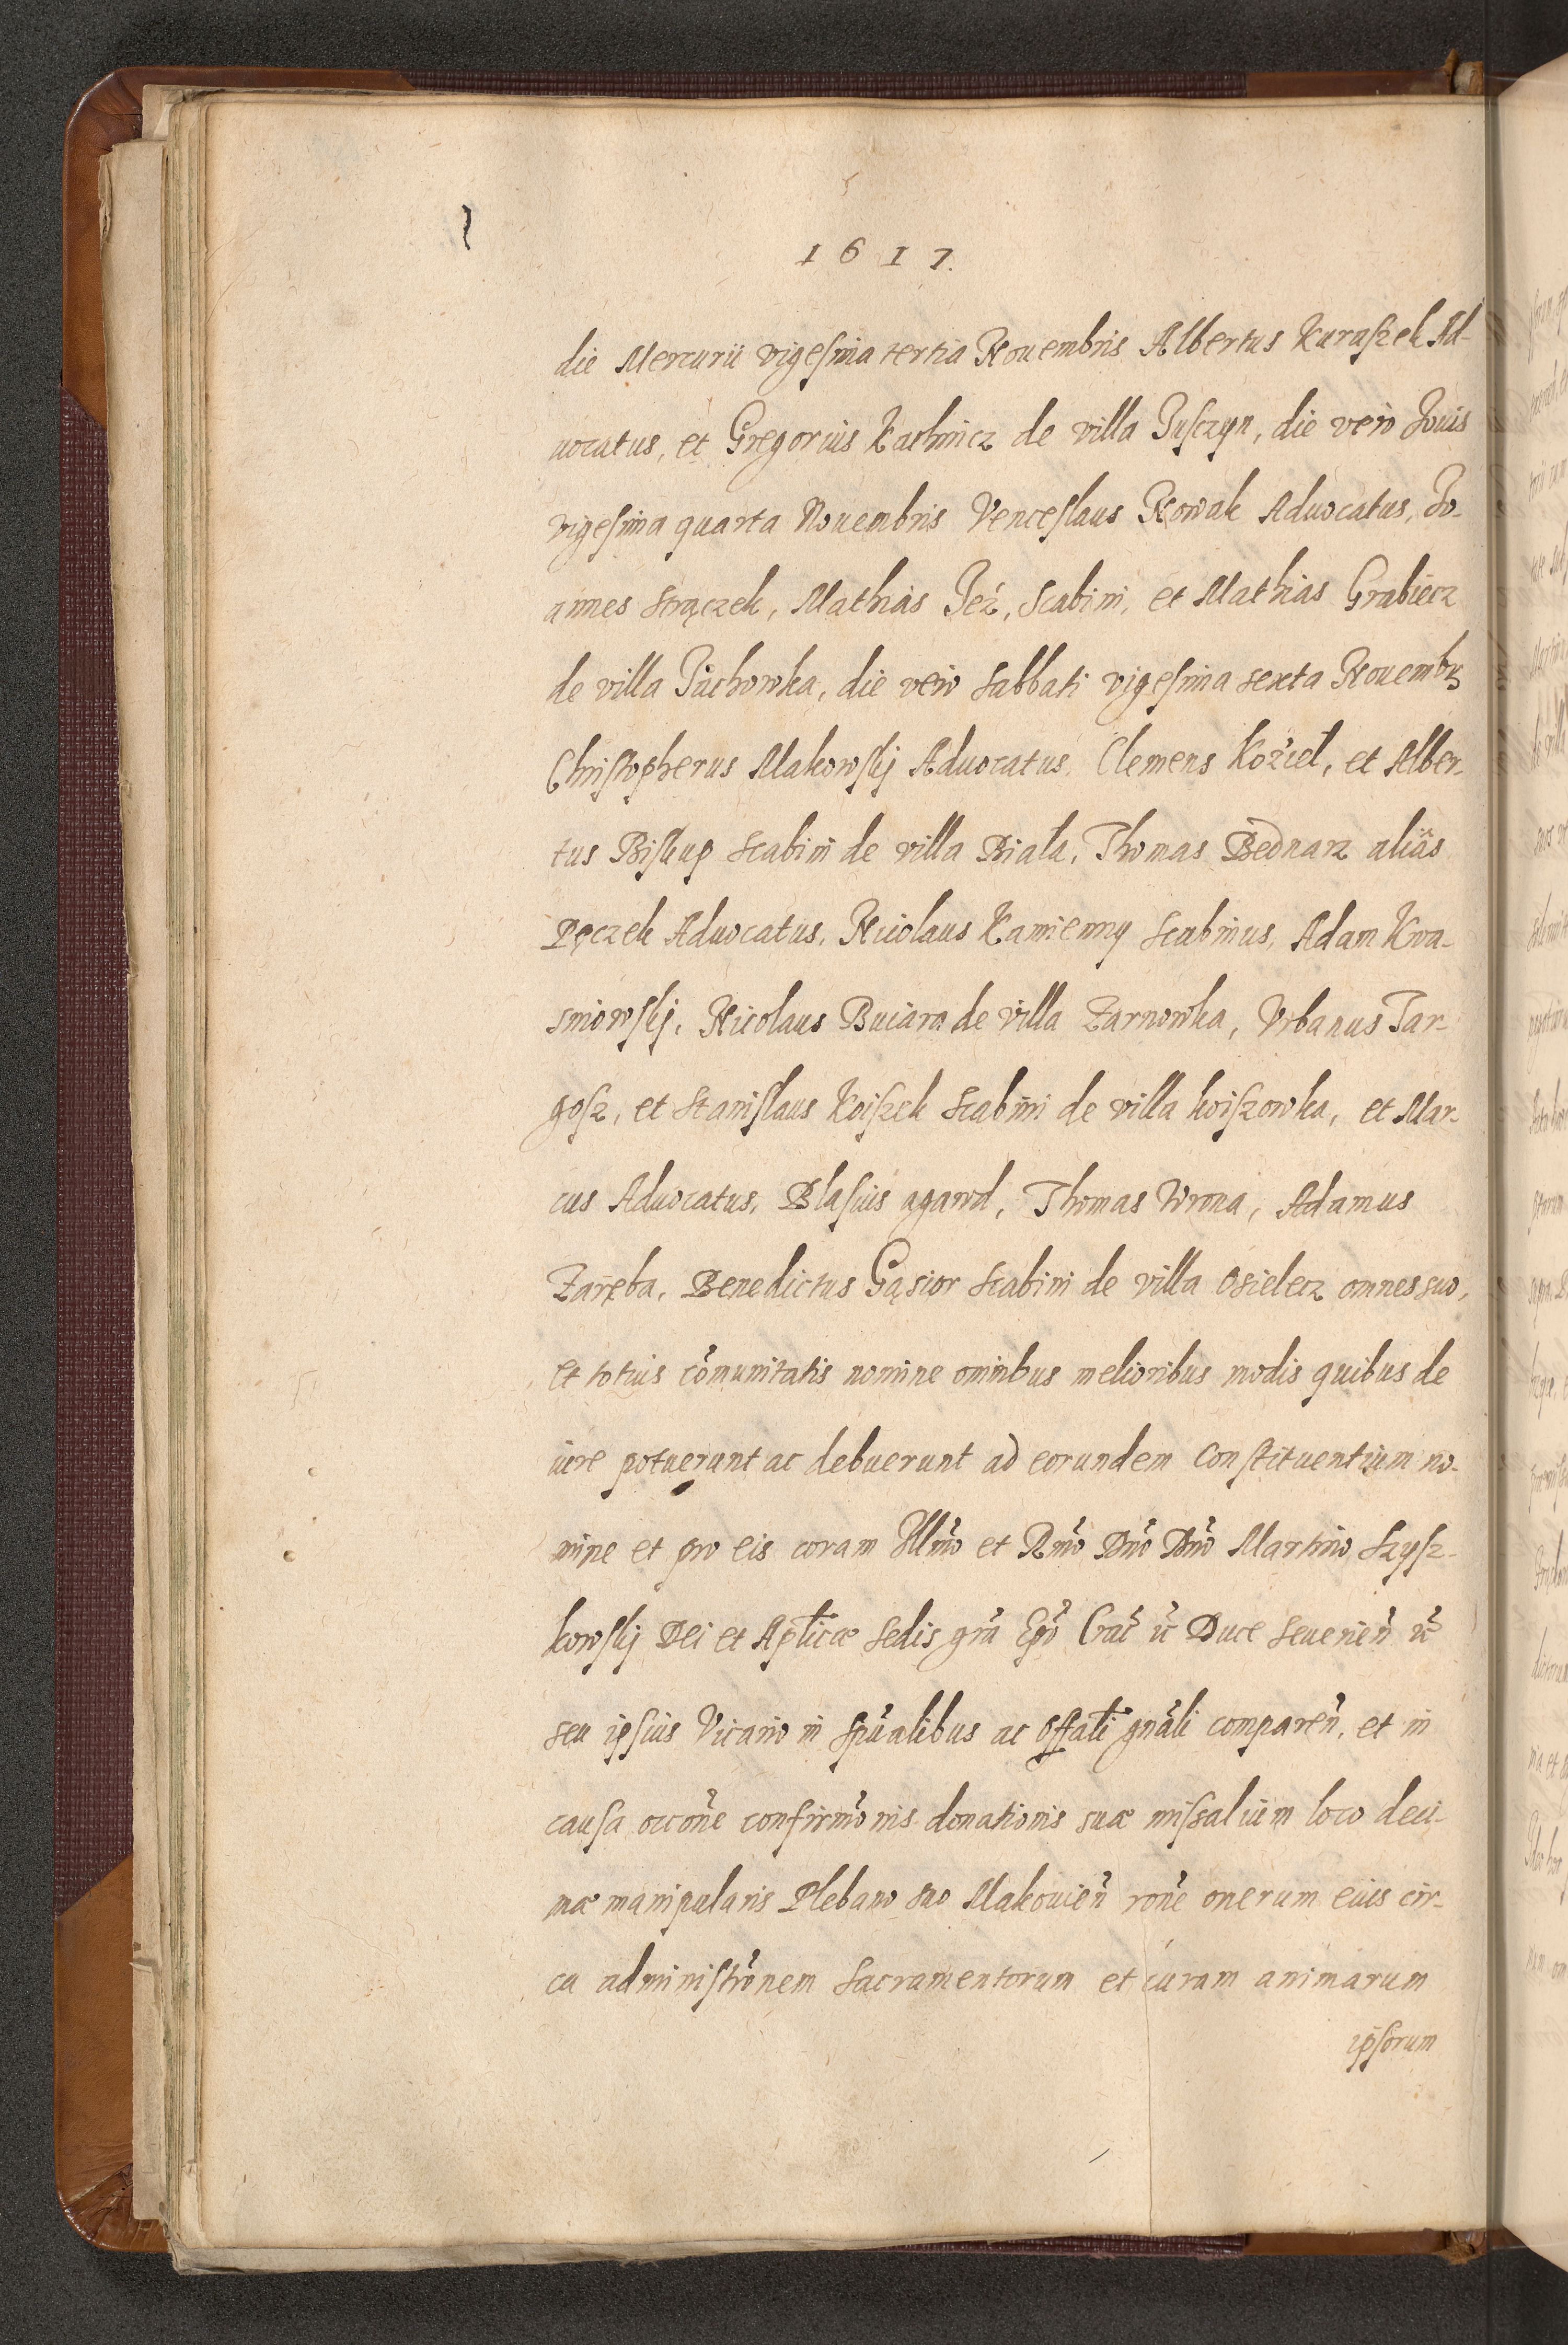 1617.
die Mercurii vigesima tertia Nouembris Albertus Kuraszek Ad-
uocatus, et Gregorius Kachnicz de villa Juszczyn, die vero Jouis
vigesima quarta Nouembris Venceslaus Nowak Aduocatus, Jo-
annes Strączek, Mathias Jeż, Scabini, et Mathias Grabiecz
de villa Juchowka, die vero Sabbati vigesima sexta Nouembris
Christopherus Makowskj Aduocatus, Clemens Kozieł, et Alber-
tus Biskup Scabini de villa Biała, Thomas Bednarz aliàs
Pęczek Aduocatus, Nicolaus Kamienny Scabinus, Adam Kwa-
sniowskj, Nicolaus Buiara de villa Zarnowka, Vrbanus Tar-
gosz, et Stanislaus Koiszek Scabini de villa koiszowka, et Mar-
cus Aduocatus, Blasius agawd, Thomas Wrona, Adamus
Zaręba, Benedictus Gąsior Scabini de villa Osielecz omnes suo,
et totius cõmunitatis nomine omnibus melioribus modis quibus de
iure potuerunt ac debuerunt ad eorundem Constituentium no-
mine et pro eis coram Illm̃o et Rm̃o Dñо Dño Martino Szysz-
kowskj Dei et Apłicæ Sedis grã Epõ Crac̃ uc̃ Duce Seuerieñ uc̃
seu ipsius Vicario in spũalibus ac Offali gnãli compareñ, et in
causa occoñe confirmõnis donationis suæ missalium loco deci-
mæ manipularis Plebano suo Makouieñ roñe onerum eius cir-
ca administrõnem Sacramentorum et curam animarum
ipsorum